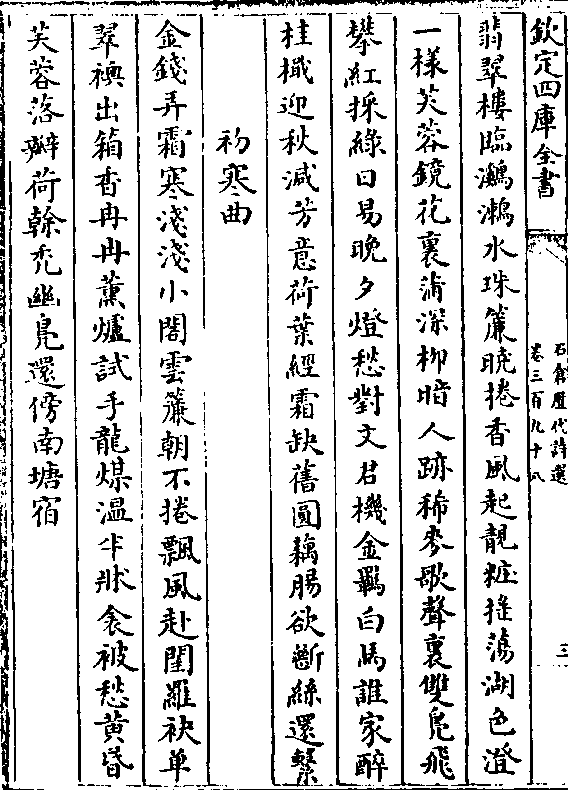 欽定四庫全書
石倉歷代詩選
卷三百九十八
三
翡翠樓臨鸂鶒水珠簾曉捲香風起靚粧搖蕩湖色澄
一樣芙蓉鏡花裏蒲深柳暗人跡稀麥歌聲裏雙鳬飛
攀紅採綠日易晚夕燈愁對文君機金羈白馬誰家醉
桂檝迎秋減芳意荷葉經霜缺舊圓藕腸欲斷絲還繫
初寒曲
金錢弄霜寒淺淺小閣雲簾朝不捲飄風赴閨羅袂单
翠襖出箱香冉冉薰爐試手龍煤温半牀衾被愁黄昏
芙蓉落瓣荷榦秃幽鳬還傍南塘宿